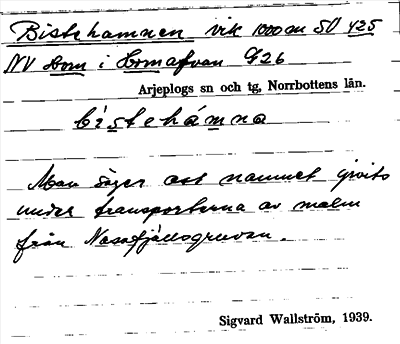 Bistehamnen vik 1000 m SO 425
NV Lom i Hornafvan G26
Arjeplogs sn och tg, Norrbottens län.
bistehámna
Man säger att namnet givits
under transporterna av malm
från Nasafjällsgruvan.
Sigvard Wallström, 1939.